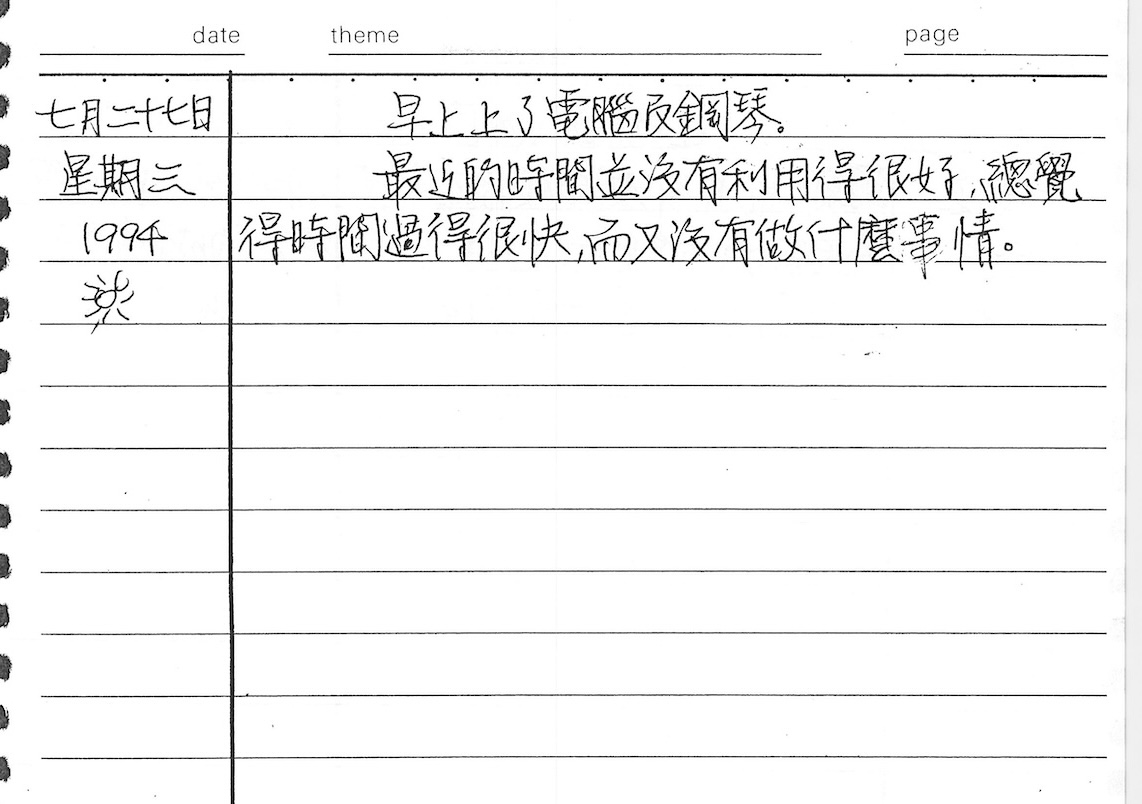 date theme page
七月二十七日
星期三
1994
早上上了電腦及鋼琴。
最近的時間並沒有利用得很好,總覺
得時間過得很快,而又沒有做什麼事情。